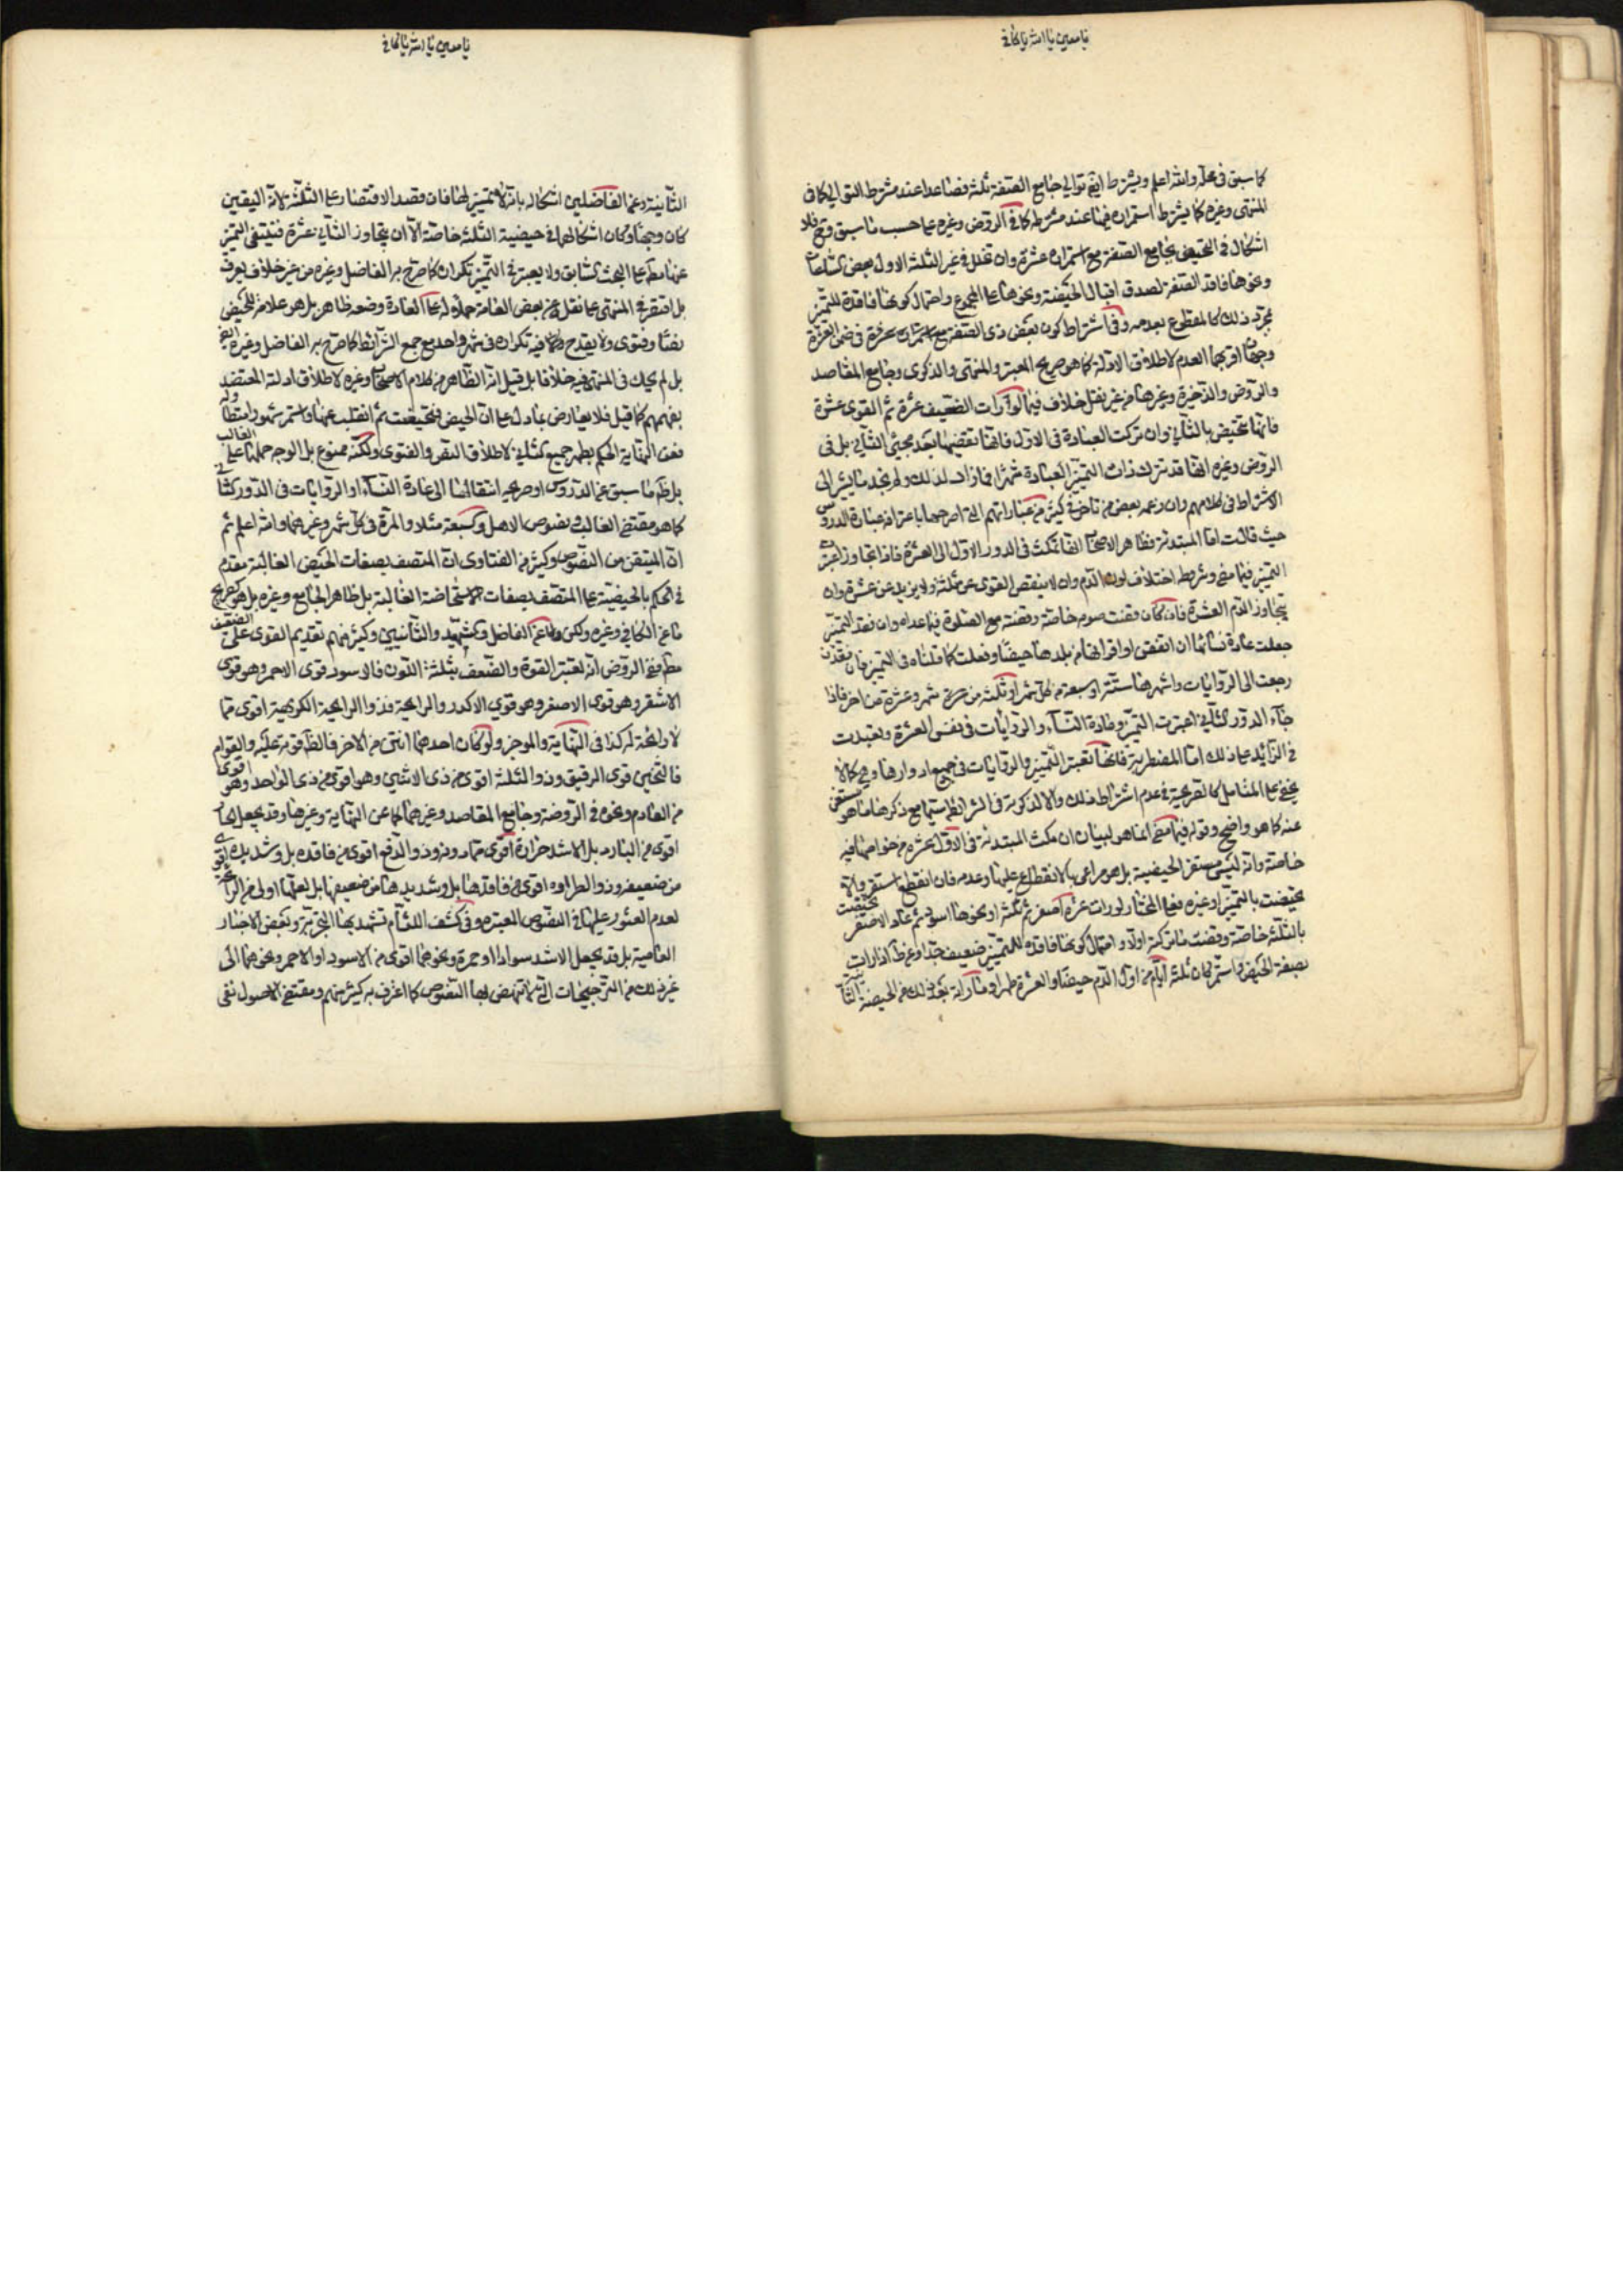 يا معين يا الله يا كافي
كما سبق فى محله والله اعلم ويشترط ايضا توالي جامع الصفة ثلثة فصاعدا عند مشترط التوالي كما فى
المنتهى وغيره كما يشترط استمراره فيها عند مشترطه كما فى الروض وغيره على حسب ما سبق فى
اشكال فى التحيض بجامع الصفة مع استمراره عشرة وان تخلل فى غير الثلثة الاول بعض
ونحوها فاقد الصفة لصدق اقبال الحيضة ونحوها على المجموع واحتمال كونها فاقدة للتميز
بمجرد ذلك كالمقطوع بعدمه وفى اشتراط كون بعض ذى الصفة مع عشرة فى ضمن العشرة
وجهان اقربهما العدم لاطلاق الادلة كما هو صريح المعتبر والمنتهى والذكرى وجامع المقاصد
والروض والذخيرة وغيرها من غير نقل خلاف فيما لو رات الضعيف عشرة ثم القوى عشرة
فانها تتحيض بالثاني وان تركت العبادة فى الاول فانها تقضيها بعد مجيئ الثاني بل فى
الروض وغيره انها قد تترك ذات التميز العبادة شهرا فما زاد لذلك ولم نجد ما يشير الى
الاشتراط فى كلامهم وان زعمه بعض من تاخر فى كثير من عباراتهم التى اصرحها باعترافه عبارة الدروس
حيث قالت اما المبتدئة فظاهر الاصحاب انها تمكث فى الدور الاول الى العشرة فاذا تجاوز اعتبرت
التميز فيما مضى وشرطه اختلاف لون الدم وان لا ينقص القوى عن ثلثة ولا يزيد عن عشرة وان
يتجاوز الدم العشرة فان كان قضت صوم خاصة وقضته مع الصلوة فيما عداه وان فقد التميز
جعلت عادة نسائها ان اتفقن او اقرانها من بلدها حيضا وفعلت كما قلناه فى التميز فان فقدن
رجعت الى الروايات واشهرها ستة او سبعة من كل شهر او ثلثة من شهر وعشرة من اخر فاذا
جاء الدور الثاني اعتبرت التميز وعادة النساء والروايات فى نفس العشرة وتعبدت
فى الزايد على ذلك اما المضطربة فانها تعتبر التميز والروايات فى جميع ادوارها وهي كما لا
يخفى على المتامل كالصريحة فى عدم اشتراط ذلك والا لذكرته فى الشرائط سيما مع ذكرها ما هو مستغنى
عنه كما هو واضح وقوله فيما مضى انما هو لبيان ان مكث المبتدئة فى الاول عشرة من خواصها فيه
خاصة وانه ليس مستقر الحيضية بل هو مراعى بالانقطاع عليها وعدمه فان انقطع استقر والا
تحيضت بالتميز او غيره فعلى المختار لو رات عشرة اصفر ثم ثلثة او نحوها اسود ثم عاد الاصفر تحيضت
بالثلثة خاصة وقضت ما تركته اولا واحتمال كونها فاقدة للتميز ضعيف جدا
بصفة الحيض واستمر كان ثلثة ايام من اول الدم حيضا والعشرة طهرا وما راته بعد ذلك من الحيضة الثانية
يا معين يا الله يا كافي
الثانية وعن الفاضلين اشكاله بانه لا تميز لها فان قصد الاقتصار على الثلثة لانه اليقين
كان وجها وكان اشكالهما فى حيضية الثلثة خاصة الا ان يتجاوز الثاني عشرة فينتفى التميز
عنها على البحث السابق ولا يعتبر فى التميز تكراره كما صرح به الفاضل وغيره من غير خلاف يعرف
بل اقتصر فى المنتهى على نقل عن بعض العامة حملا له على العادة وضعفه ظاهر بل هو علامة للحيض
نصا وفتوى ولا يقدح فيه تكراره فى شهر واحد مع جمع الشرائط كما صرح به الفاضل وغيره ايضا
بل لم يحك فى المنتهى فيه خلافا بل قيل انه الظاهر من كلام الاصحاب وغيره لاطلاق ادلته المعتضد
بفهمهم كما قيل فلا يعارض بما دل على ان الحيض فتحيضت ثم انقلب عنها واستمر شهور
فعن النهاية الحكم بطهر جميع لاطلاق النص والفتوى ولكنه ممنوع بل الوجه حملها على الغالب
بل ظاهر ما سبق عن الدروس او صريحه انتقالها الى عادة النساء او الروايات فى الدور
كما هو مقتضى الغالب ونصوص الاهل وكسبعة مثلا والمرة فى كل شهر وغيرهما والله اعلم ثم
ان المتيقن من النصوص وكثير من الفتاوى ان المتصف بصفات الحيض الغالبة مقدم
فى الحكم بالحيضية على المتصف بصفات الاستحاضة الغالبة بل ظاهر الجامع وغيره بل هو كصريح
ما عن الكافي وغيره ولكن ما عن الفاضل والشهيد والثانيين وكثير منهم تقديم القوى على الضعيف
ففى الروض انه تعتبر القوة والضعف بثلثة اللون فالاسود قوى الاحمر وهو قوى
الاشقر وهو قوى الاصفر وهو قوى الاكدر والرايحة فذو الرايحة الكريهة اقوى مما
لا رائحة له كذا فى النهاية والموجز ولو كان احدهما انتن من الاخر فالظاهر قوته عليه والقوام
فالثخين قوى الرقيق وذو الثلثة اقوى من ذى الاثنين وهو اقوى من ذى الواحد وهو اقوى
من العادم ونحوه فى الروضة وجامع المقاصد وغيرهما كما عن النهاية وغيرها وقد يجعل الحار
اقوى من البارد بل الاشد حرارة اقوى مما دونه وذو الدفع اقوى من فاقده بل وشديده اقوى
من ضعيفه وذو الطراوة اقوى من فاقدها بل وشديدها من ضعيفها بل لعلهما اولى من الرائحة
لعدم العثور عليها فى النصوص المعتبرة وفى كشف اللثام تشهد بها التجربة وبعض الاخبار
العامية بل قد يجعل الاشد سوادا او حمرة ونحوهما اقوى من الاسود او الاحمر ونحوهما الى
غير ذلك من الترجيحات التى لا تنهض بها النصوص كما اعترف به كثير منهم ومقتضى الاصول نفى